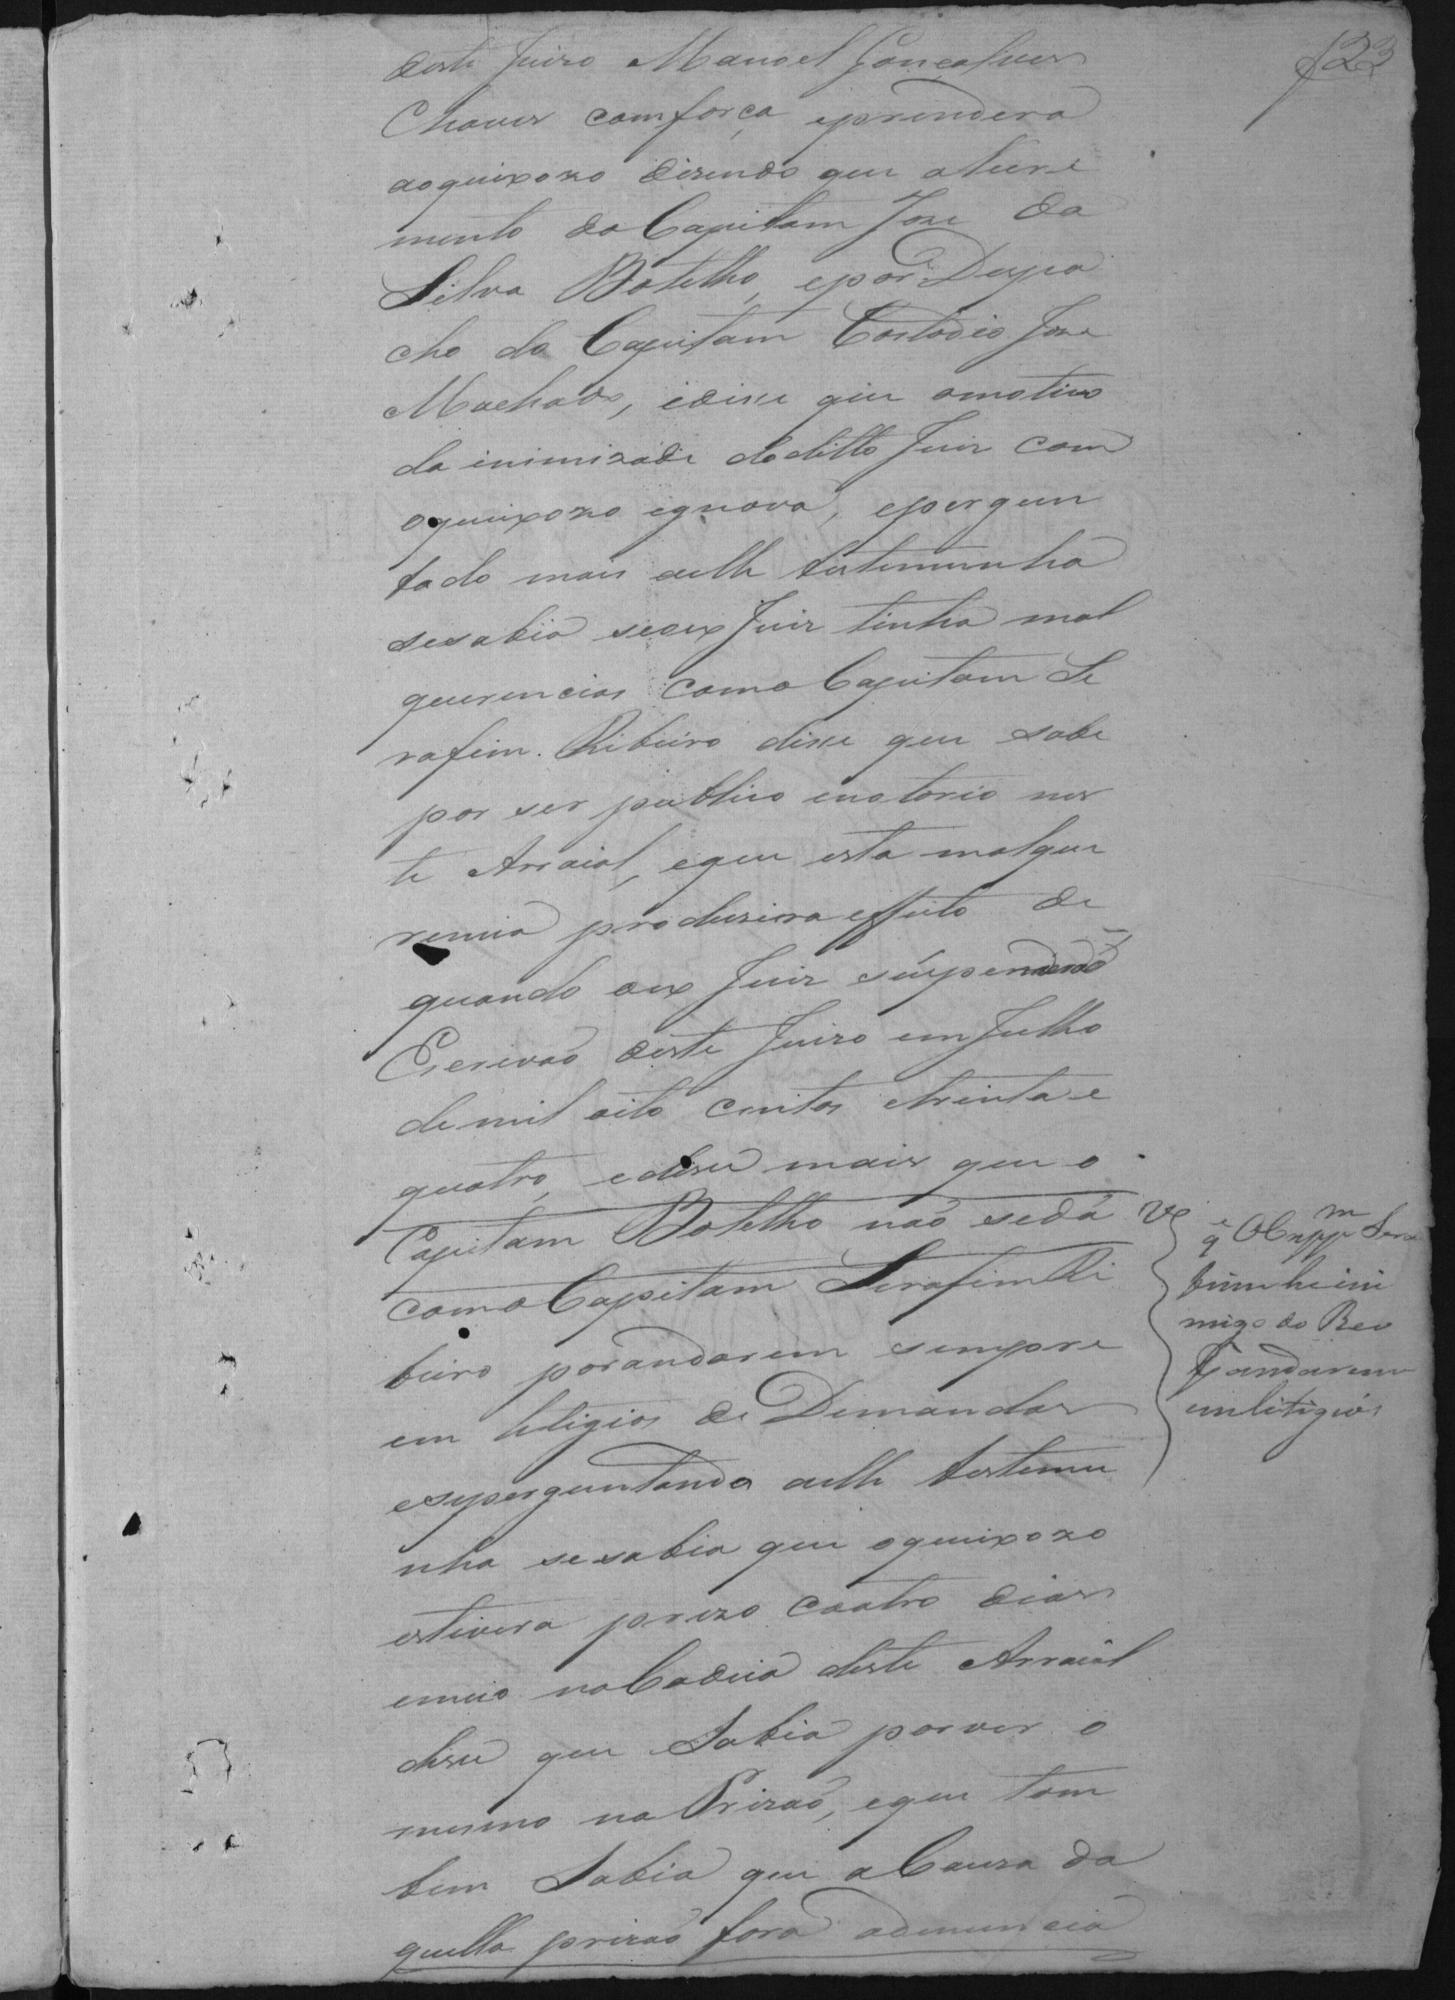 123
deste Juizo Manoel Gonçalves
Chaves com força eprendera
aoqueixozo dizendo que a
mento do Capitam Joze da
Silva Botelho, epor Despa
cho do Capitam Costodio Joze
Machado, edixe que omotivo
da inimizade doditto Juiz com
oqueixozo egnora, epergun
tado mais aelle testemunha
sesabia seoex Juiz tinha mal
querencias como Capitam Se
rafim Ribeiro dixe que sabe
por ser publico enotorio nes
te Arraial, eque esta malque
rencia produzira effeito de
quando oex Juiz suspendeo o
Escrivaõ deste Juizo em Julho
de mil oito centos etrinta e
quatro, edise mais que o
Capitam Botelho naõ sedá
como Capitam Serafim Ri
beiro porandarem sempre
em letigios de Demandas
esyperguntando aelle testemu
nha sesabia que oqueixozo
estivera prezo coatro dias
emeio naCadeia deste Arraial
dise que Sabia porver o
mesmo na Prizaõ, eque tam
bem Sabia que aCauza da
quella prizaõ fora adenuncia
migo do Reo
andarem
emlitigios